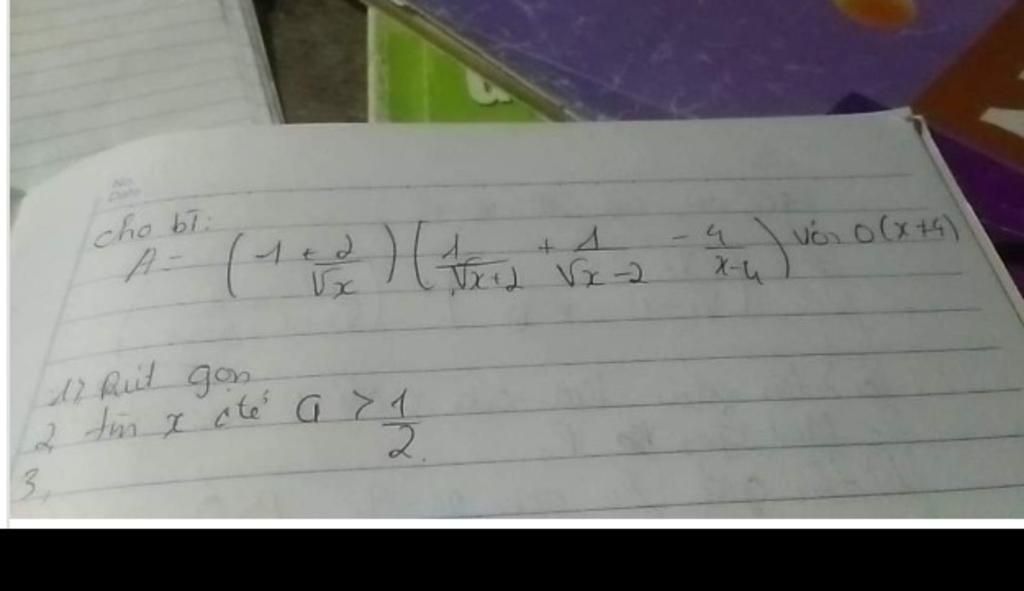 No.
Date
cho bT:
A = (1 + 2/√x) (1/√x+2 + 1/√x-2 - 4/x-4) với 0(x+4)
1) Rút gọn
2, tìm x để G > 1/2.
3,